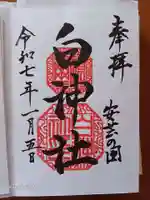 奉拝
安芸国
白神社
令和七年一月五日